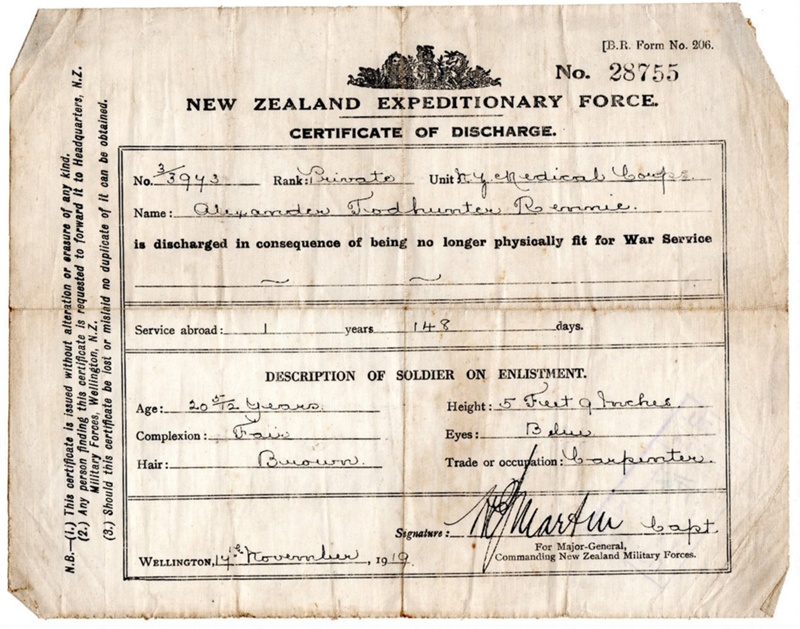 [B.R. Form No. 206.
No. 28755
NEW ZEALAND EXPEDITIONARY FORCE.
CERTIFICATE OF DISCHARGE.
No. 3/3943 Rank: Private Unit N.Z. Medical Corps.
Name: Alexander Todhunter Rennie.
is discharged in consequence of being no longer physically fit for War Service
~ ~
Service abroad: 1 years 148 days.
DESCRIPTION OF SOLDIER ON ENLISTMENT.
Age: 20 5/12 Years. Height: 5 Feet 9 Inches.
Complexion: Fair Eyes: Blue
Hair: Brown. Trade or occupation: Carpenter.
Signature: Martin Capt
For Major-General,
Commanding New Zealand Military Forces.
WELLINGTON, 14th November, 1919
N.B.—(1.) This certificate is issued without alteration or erasure of any kind.
(2.) Any person finding this certificate is requested to forward it to Headquarters, N.Z.
Military Forces, Wellington, N.Z.
(3.) Should this certificate be lost or mislaid no duplicate of it can be obtained.